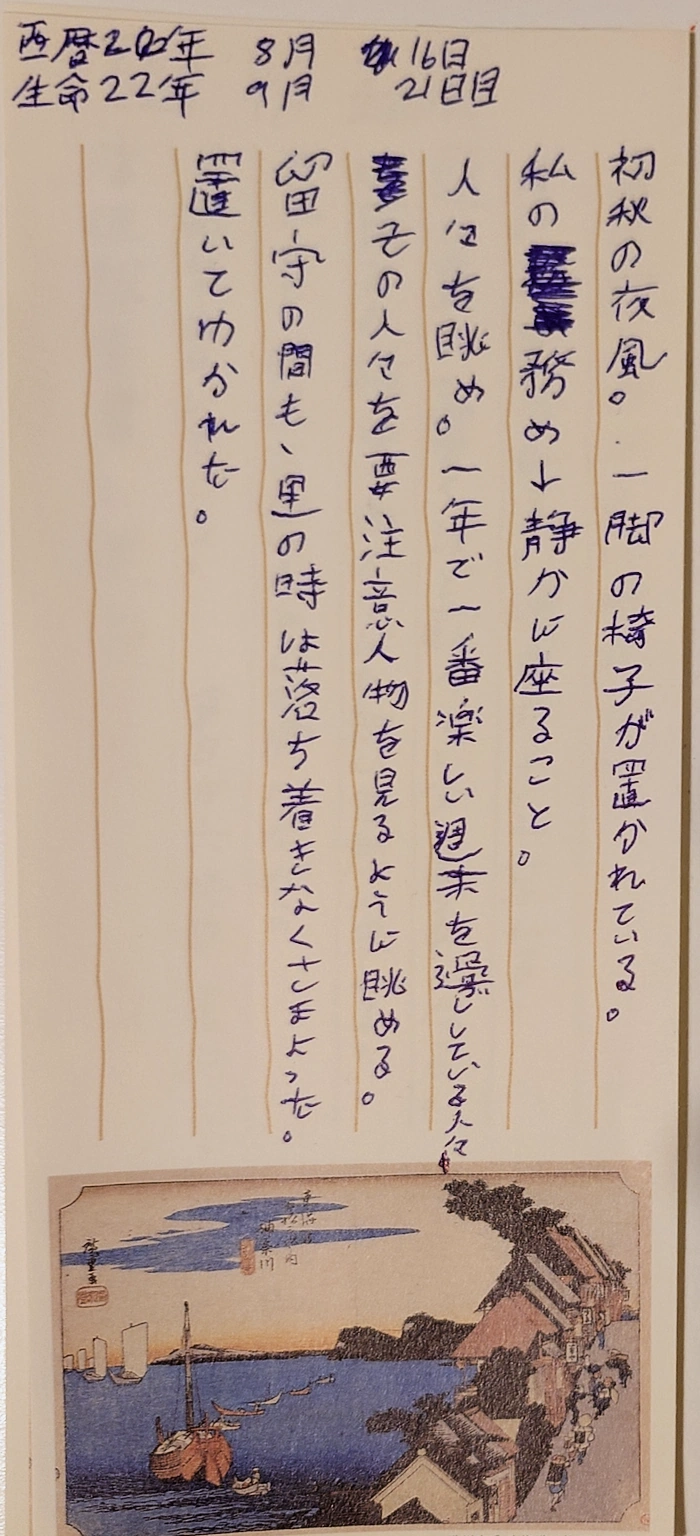 西暦202年 8月 16日
生命22年 9月 21日目
初秋の夜風。一脚の椅子が置かれている。
私の務め↓静かに座ること。
人々を眺め。一年で一番楽しい週末を過ししている人々
その人々を要注意人物を見るように眺める。
留守の間も、黒の時は落ち着きなくさまよった。
置いてゆかれた。
東海道
五拾三次之内
神奈川
廣重画